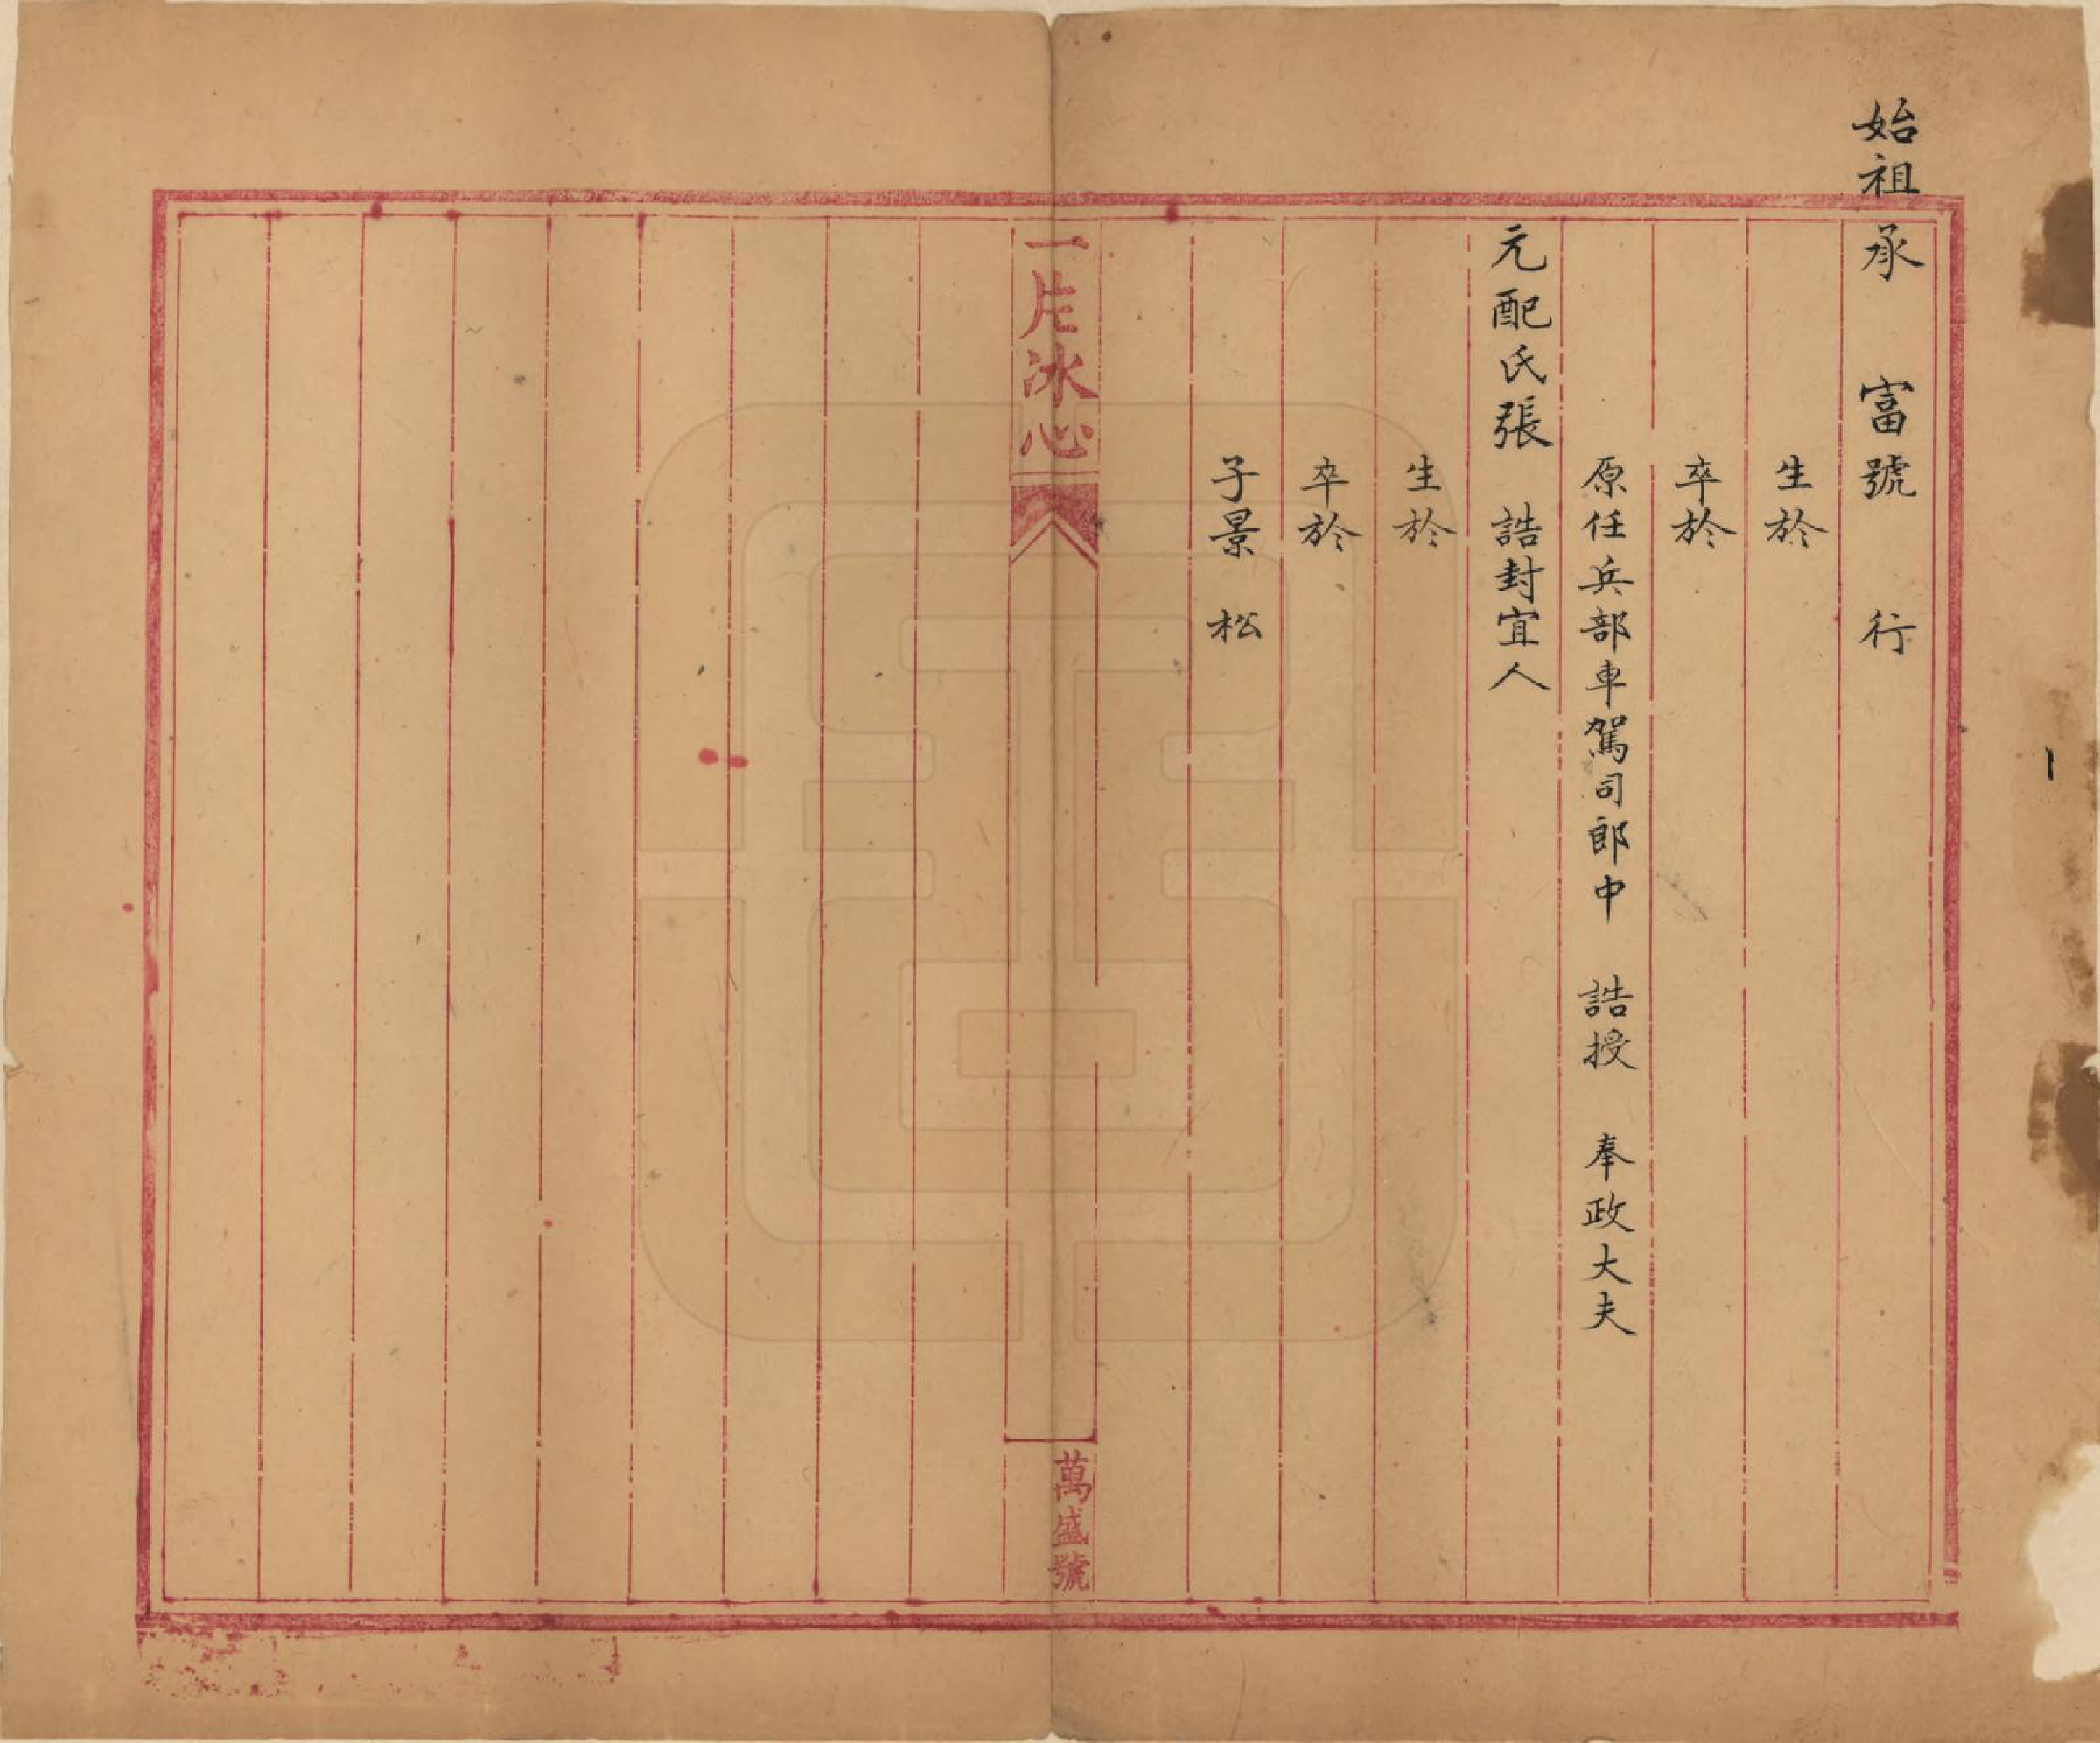 始祖承富號行
生於
卒於
原任兵部車駕司郎中誥授奉政大夫
元配氏張誥封宜人
生於
卒於
子景松
一片冰心
萬盛號